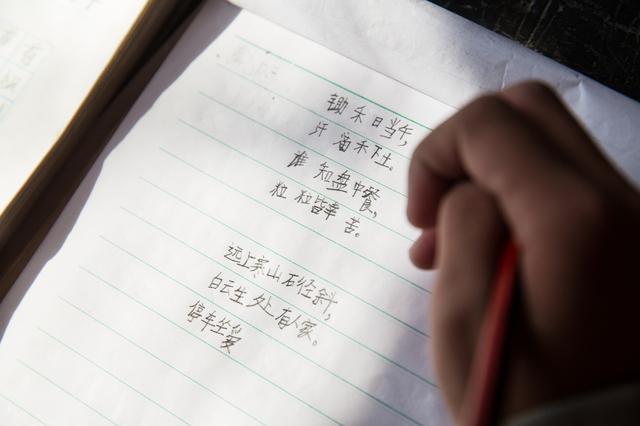 锄禾日当午,
汗滴禾下土。
谁知盘中餐,
粒粒皆辛苦。
远上寒山石径斜,
白云生处有人家。
停车坐爱